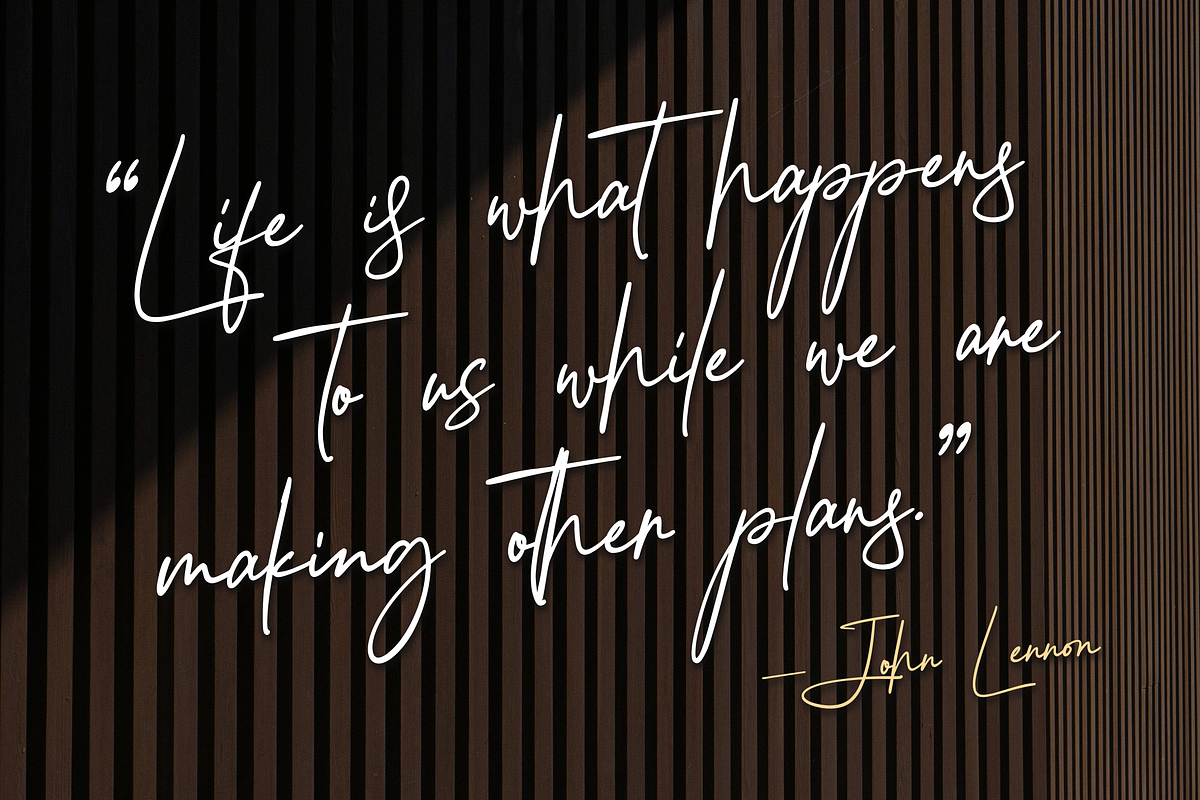 “Life is what happens
to us while we are
making other plans.”
—John Lennon